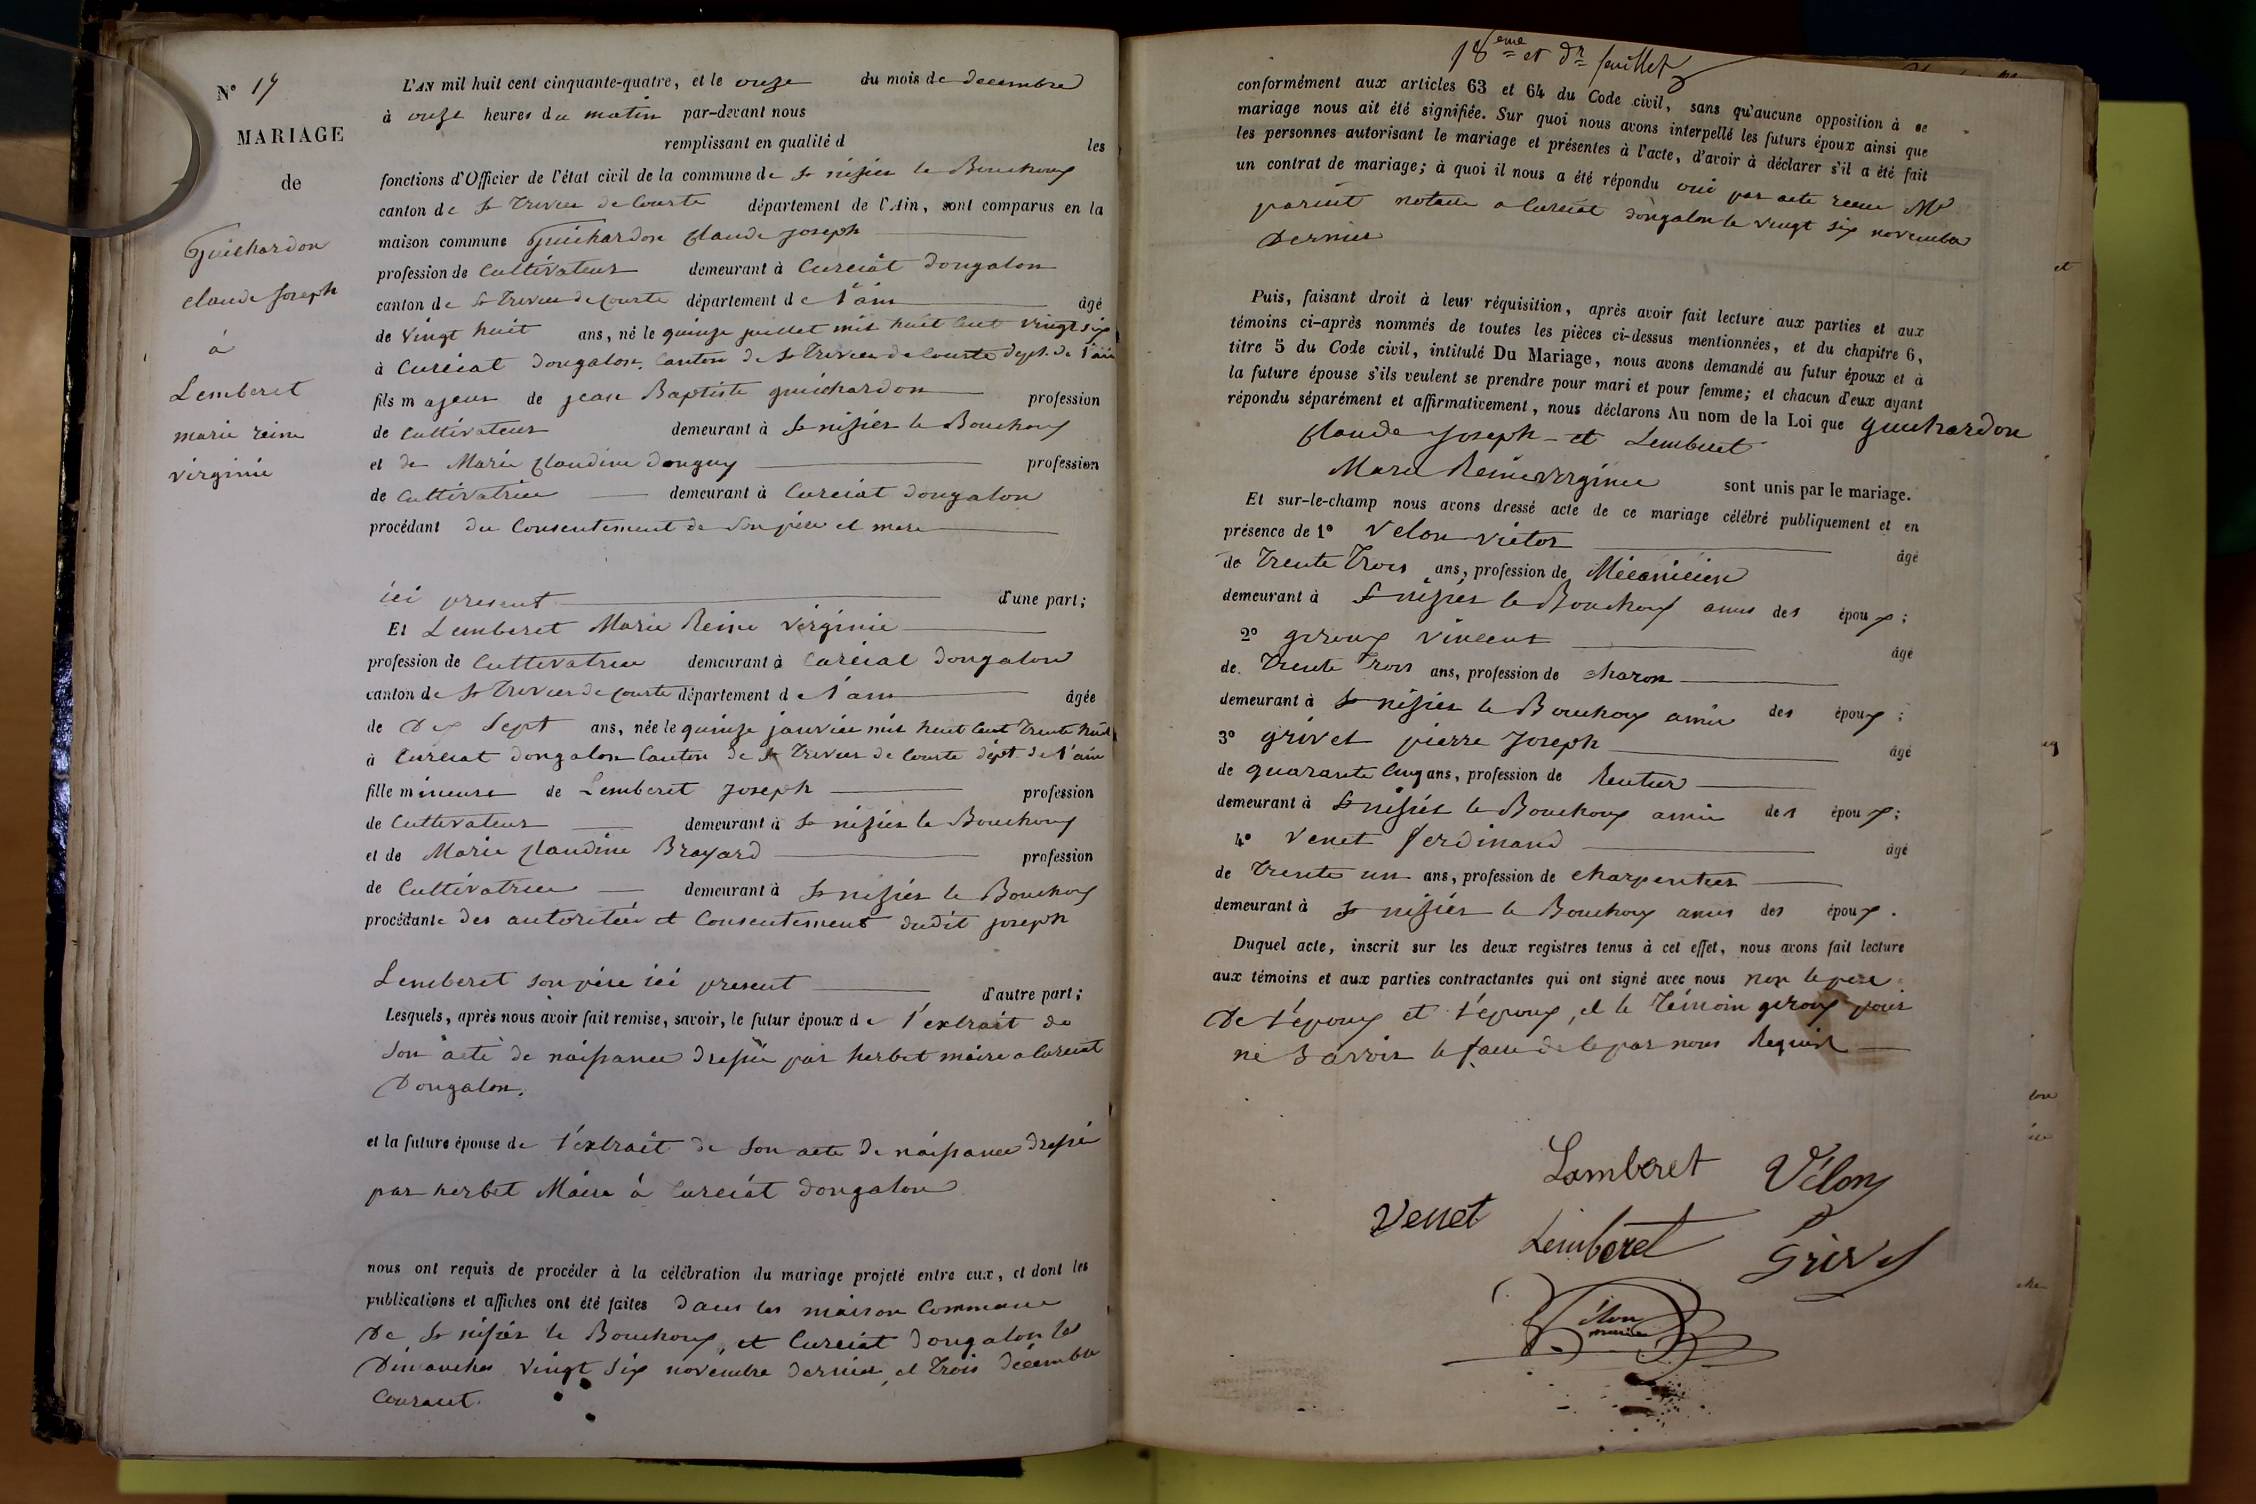 N° 17
MARIAGE
de
Guichardon
claude Joseph
à
Lemberet
marie reine
virginie
L'AN mil huit cent cinquante-quatre, et le onze du mois de decembre
à onze heures du matin par-devant nous
remplissant en qualité d les
fonctions d'Officier de l'état civil de la commune de St nizier le Bouchoux
canton de St Trivier de Courte département de l'Ain, sont comparus en la
maison commune Guichardon Claude Joseph
profession de Cultivateur demeurant à Curciat dongalon
canton de St Trivier de Courte département de l'ain âgé
de vingt huit ans, né le quinze juillet mil huit cent vingt six
à Curciat dongalon, canton de St Trivier de Courte dept. de l'ain
fils majeur de jean Baptiste guichardon profession
de Cultivateur demeurant à St nizier le Bouchoux
et de Marie Claudine donguy profession
de Cultivatrice demeurant à Curciat dongalon
procédant du Consentement de son père et mere
ici present d'une part;
Et Lemberet Marie Reine virginie
profession de Cultivatrice demeurant à Curciat dongalon
canton de St Trivier de Courte département de l'ain âgée
de Dix Sept ans, née le quinze janvier mil huit cent trente huit
à Curciat dongalon Canton de St Trivier de Courte dépt de l'ain
fille mineure de Lemberet Joseph profession
de Cultivateur demeurant à St nizier le Bouchoux
et de Marie Claudine Brayard profession
de Cultivatrice demeurant à St nizier le Bouchoux
procédante des autoritée et Consentement dudit joseph
Lemberet son père ici present d'autre part;
Lesquels, après nous avoir fait remise, savoir, le futur époux de l'extrait de
son acte de naissance dressée par herbet maire a Curciat
Dongalon.
et la future épouse de l'extrait de son acte de naissance dressée
par herbet Maire à Curciat dongalon
nous ont requis de procéder à la célébration du mariage projeté entre eux, et dont les
publications et affiches ont été faites dans les maison Commune
De St nizier le Bouchoux, et Curciat dongalon les
Dimanches vingt six novembre dernier, et trois décembre
Courant.
18eme et dr feuillet
conformément aux articles 63 et 64 du Code civil, sans qu'aucune opposition à ce
mariage nous ait été signifiée. Sur quoi nous avons interpellé les futurs époux ainsi que
les personnes autorisant le mariage et présentes à l'acte, d'avoir à déclarer s'il a été fait
un contrat de mariage; à quoi il nous a été répondu oui par acte recu Me
notaire a Curciat dongalon le vingt six novembre
Dernier
Puis, faisant droit à leur réquisition, après avoir fait lecture aux parties et aux
témoins ci-après nommés de toutes les pièces ci-dessus mentionnées, et du chapitre 6,
titre 5 du Code civil, intitulé Du Mariage, nous avons demandé au futur époux et à
la future épouse s'ils veulent se prendre pour mari et pour femme; et chacun d'eux ayant
répondu séparément et affirmativement, nous déclarons Au nom de la Loi que guichardon
Claude Joseph et Lemberet
Marie Reine virginie sont unis par le mariage.
Et sur-le-champ nous avons dressé acte de ce mariage célébré publiquement et en
présence de 1° Velon victor âgé
de Trente Trois ans, profession de Mécanicien
demeurant à St nizier le Bouchoux amis des époux;
2° giroux vincent âgé
de Trente Trois ans, profession de charon
demeurant à St nizier le Bouchoux amis des époux;
3° grivet pierre Joseph âgé
de quarante cinq ans, profession de Rentier
demeurant à St nizier le Bouchoux amis des époux;
4° Venet ferdinand âgé
de Trente un ans, profession de charpentier
demeurant à St nizier le Bouchoux amis des époux.
Duquel acte, inscrit sur les deux registres tenus à cet effet, nous avons fait lecture
aux témoins et aux parties contractantes qui ont signé avec nous non le père
De l'époux et l'époux, et le témoin giroux pour
ne savoir le faire de le par nous Requis
Lamberet Vélon
Venet
Lemberet Grivet
Vélon
maire